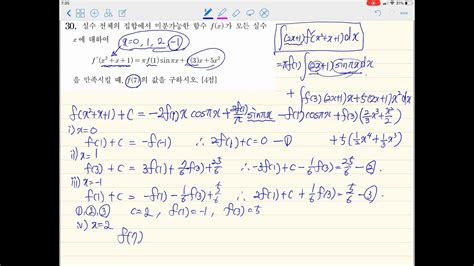 7:05
30. 실수 전체의 집합에서 미분가능한 함수 f(x)가 모든 실수
x에 대하여
x=0, 1, 2, -1
f'(x²+x+1) = πf(1)sinπx + f(3)x + 5x²
을 만족시킬 때, f(7)의 값을 구하시오. [4점]
∫(2x+1)f'(x²+x+1)dx
= πf(1)∫(2x+1)sinπx dx
+∫f(3)(2x+1)x+5(2x+1)x²dx
f(x²+x+1)+C = -2f(1)x cosπx + 2f(1)/π sinπx - f(1)cosπx + f(3)(2/3x³+x²/2)
+5(1/2x⁴+1/3x³)
i) x=0
f(1)+C = -f(1) ∴ 2f(1)+C=0 -①
ii) x=1
f(3)+C = 3f(1)+7/6f(3)+25/6 ∴ -3f(1)-1/6f(3)+C=25/6 -②
iii) x=-1
f(1)+C = -f(1)-1/6f(3)+5/6 ∴ 2f(1)+C+1/6f(3)=5/6 -③
①,②,③ C=2, f(1)=-1, f(3)=5
iv) x=2
f(7)